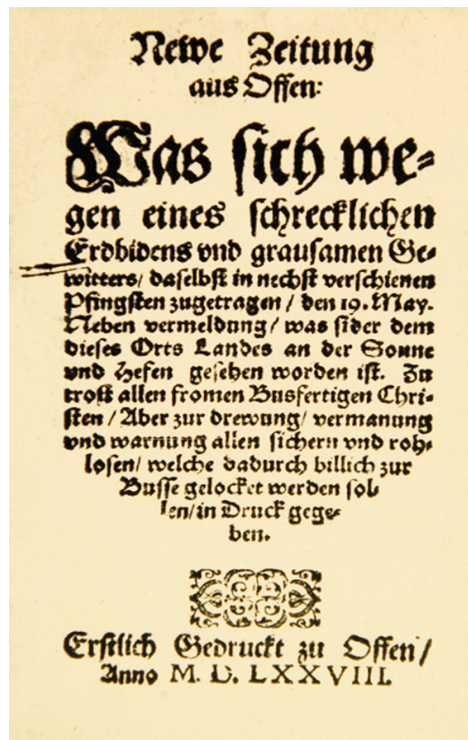 Newe Zeitung
aus Offen:
Was sich we-
gen eines schrecklichen
Erdbidens vnd grausamen Ge-
witters/ daselbst in nechst verschienen
Pfingsten zugetragen / den 19. May.
Neben vermeldung/ was sider dem
dieses Orts Landes an der Sonne
vnd Hefen gesehen worden ist. Zu
trost allen fromen Busfertigen Chri-
sten / Aber zur drewung/ vermanung
vnd warnung allen sichern vnd roh-
losen/ welche dadurch billich zur
Busse gelocket werden sol-
len/ in Druck gege-
ben.
Erstlich Gedruckt zu Offen /
Anno M. D. LXXVIII.